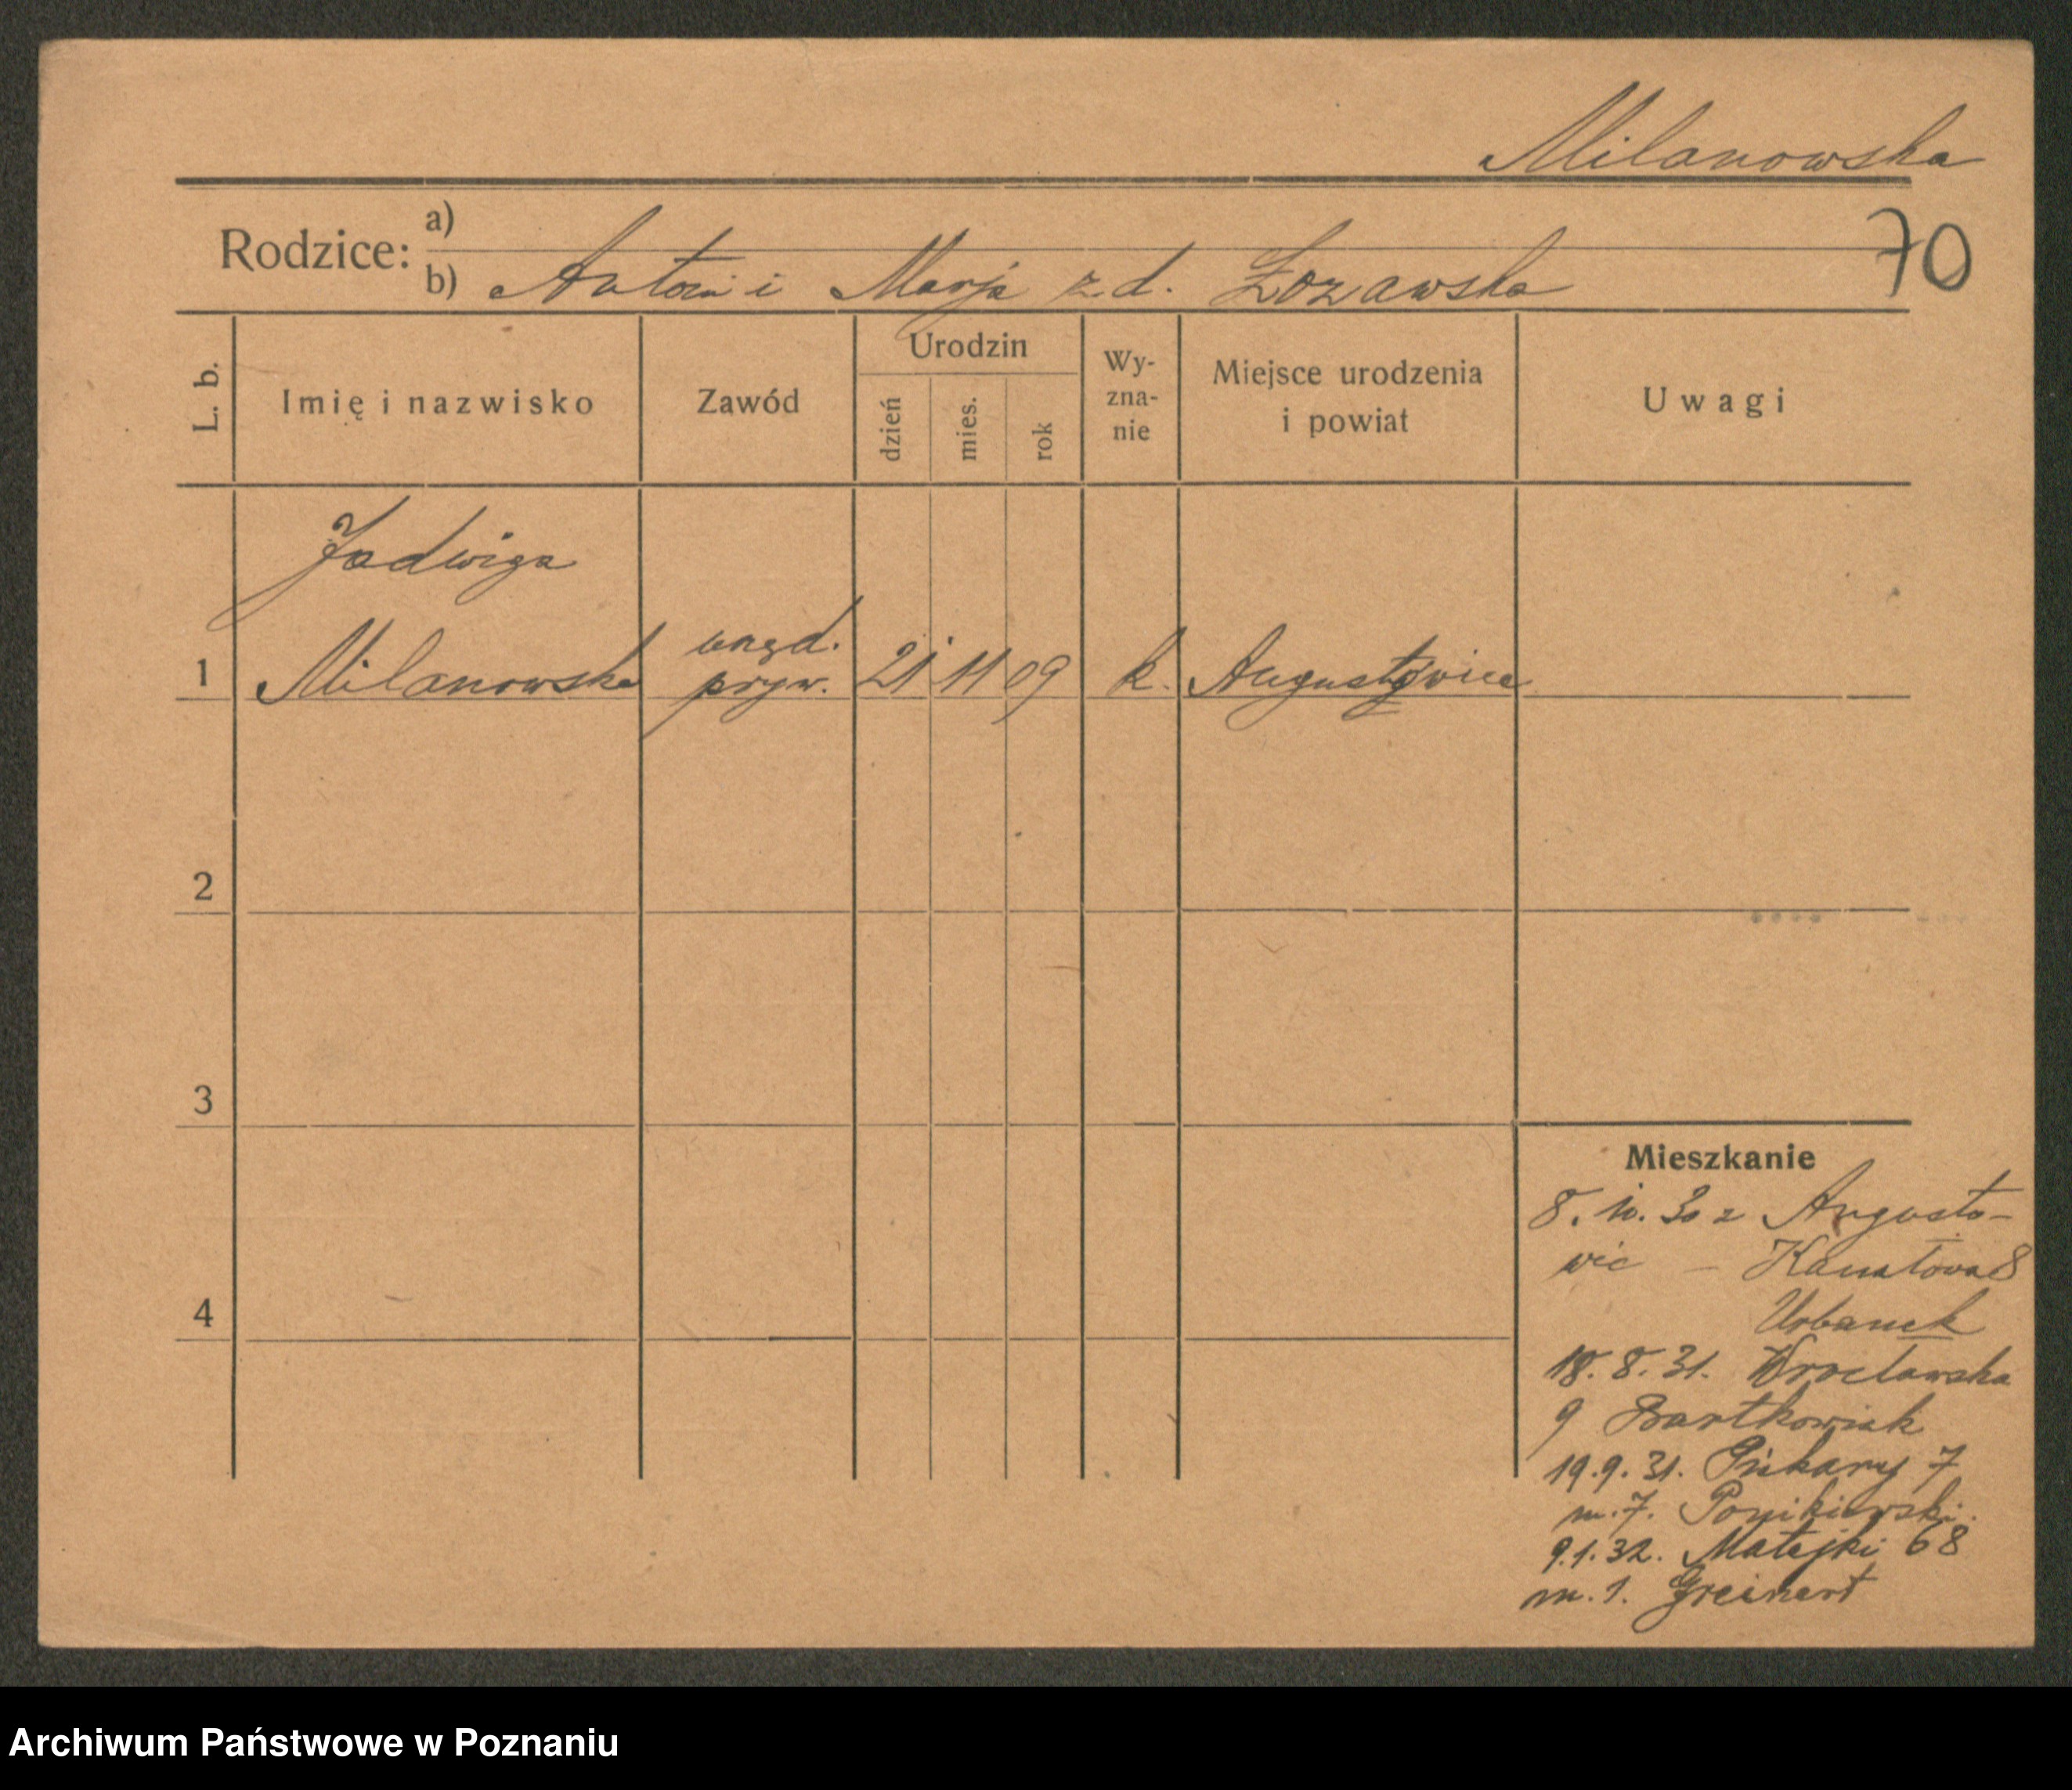 Milanowska
70
Rodzice:
a)
b) Antoni i Marja z d.
L. b.
Imię i nazwisko
Zawód
Urodzin
dzień
mies.
rok
Wy-
zna-
nie
Miejsce urodzenia
i powiat
Uwagi
Jadwiga
1 Milanowska urzęd. pryw. 21 11 09 k.
2
3
4
Mieszkanie
8. 10. 30 z Augusto-
wic –
Urbanek
18. 8. 31. Wrocławska
9 Bartkowiak
19. 9. 31. Piekary 7
m. 7. Ponikiewski
9. 1. 32. Matejki 68
m. 1. Greinert
Archiwum Państwowe w Poznaniu